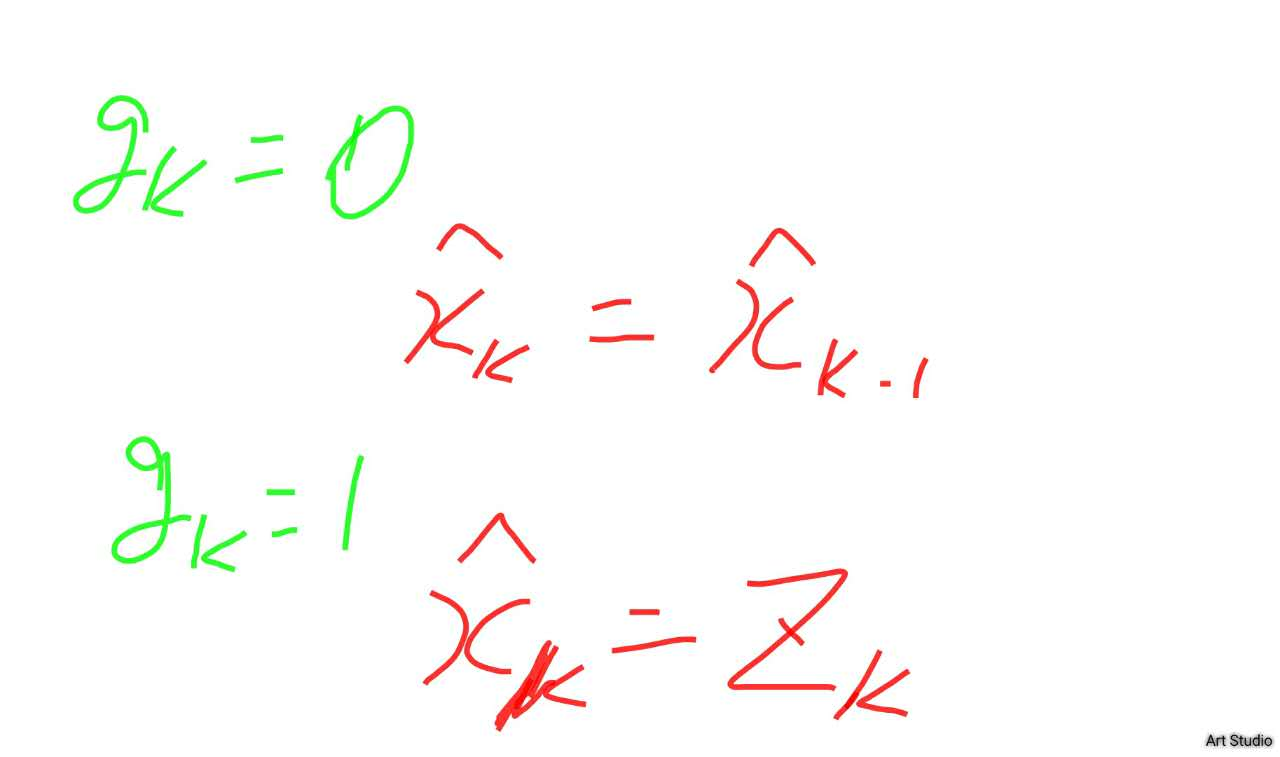 g_k = 0
x̂_k = x̂_{k-1}
g_k = 1
x̂_k = z_k
Art Studio